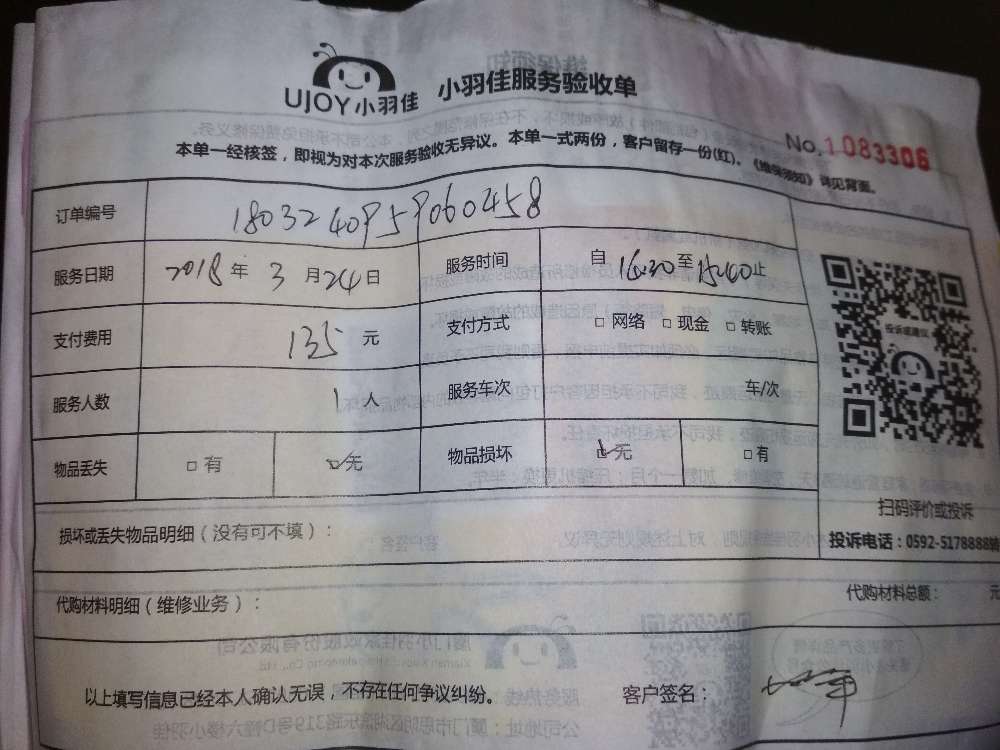 UJOY小羽佳 小羽佳服务验收单
No.1083306
本单一经核签，即视为对本次服务验收无异议。本单一式两份，客户留存一份(红)。《维保须知》详见背面。
订单编号 1803240959060458
服务日期 2018年3月24日 服务时间 自 至 止
支付费用 135元 支付方式 □网络 □现金 □转账
服务人数 1人 服务车次 车/次
物品丢失 □有 ☑无 物品损坏 ☑无 □有
投诉或建议
扫码评价或投诉
投诉电话：0592-5178888转
损坏或丢失物品明细（没有可不填）：
代购材料明细（维修业务）： 代购材料总额： 元
以上填写信息已经本人确认无误，不存在任何争议纠纷。 客户签名：